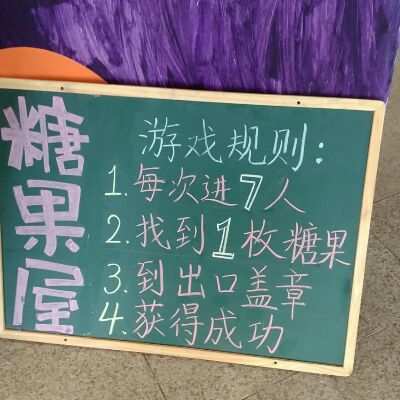 糖果屋
游戏规则:
1. 每次进7人
2. 找到1枚糖果
3. 到出口盖章
4. 获得成功